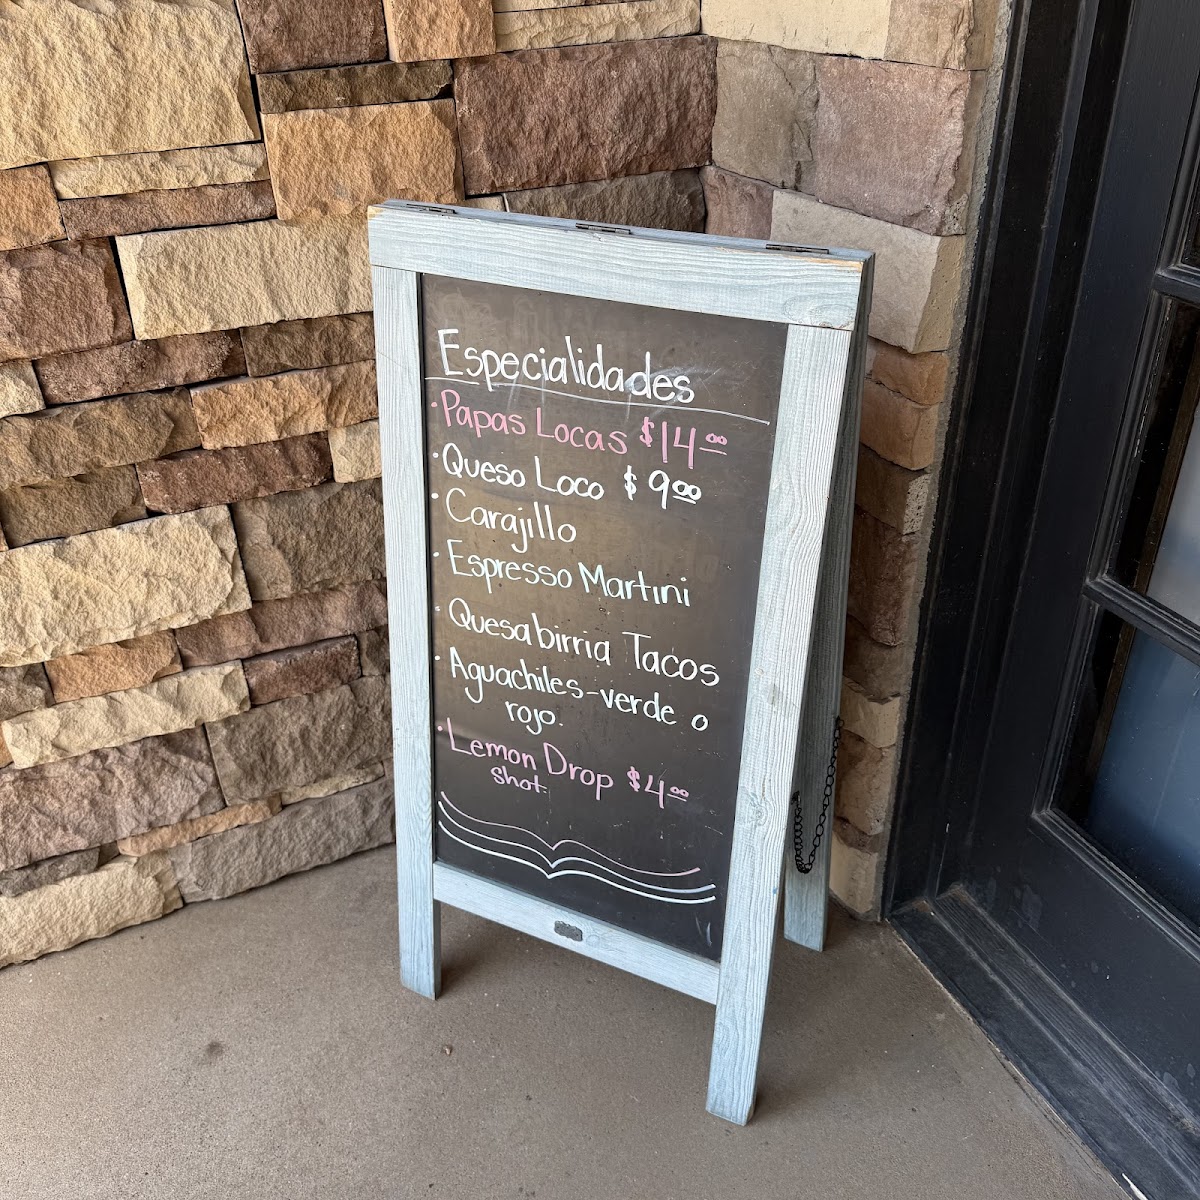 Especialidades
· Papas Locas $14.00
· Queso Loco $9.00
· Carajillo
· Espresso Martini
· Quesabirria Tacos
· Aguachiles-verde o
rojo.
· Lemon Drop $4.00
shot